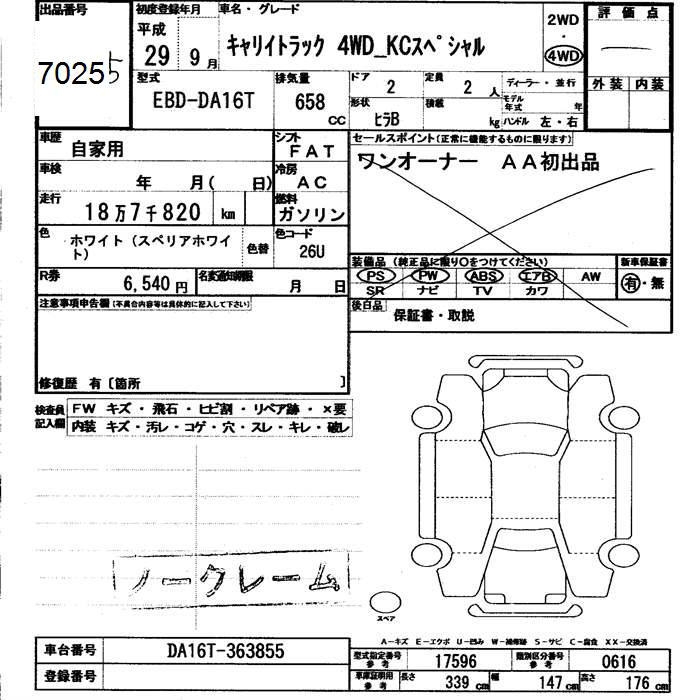 出品番号 初度登録年月 車名・グレード 2WD 評価点
70255 平成 29年 9月 キャリイトラック 4WD_KCスペシャル ・ 4WD
型式 排気量 ドア 定員 ディーラー・並行 外装 内装
EBD-DA16T 658 CC 2 2 人 モデル年式 年
形状 ヒラB 積載 kg ハンドル 左・右
車歴 自家用 シフト FAT セールスポイント(正常に機能するものに限ります)
車検 年 月( 日) 冷房 AC ワンオーナー AA初出品
走行 18万7千820 km 燃料 ガソリン
色 ホワイト(スペリアホワイト) 色替 色コード 26U
装備品(純正品に限り○をつけてください) 新車保証書
PS PW ABS エアB AW 有・無
SR ナビ TV カワ
R券 6,540円 名変通知期限 月 日
後日品 保証書・取説
注意事項申告欄(不具合内容等は具体的に記入して下さい)
修復歴 有〔箇所 〕
検査員記入欄 FW キズ・飛石・ヒビ割・リペア跡・×要
内装 キズ・汚レ・コゲ・穴・スレ・キレ・破レ
ノークレーム
スペア
A-キズ E-エクボ U-凹み W-補修跡 S-サビ C-腐食 XX-交換済
車台番号 DA16T-363855 型式指定番号 参考 17596 類別区分番号 参考 0616
登録番号 車庫証明用 参考 長さ 339 cm 幅 147 cm 高さ 176 cm